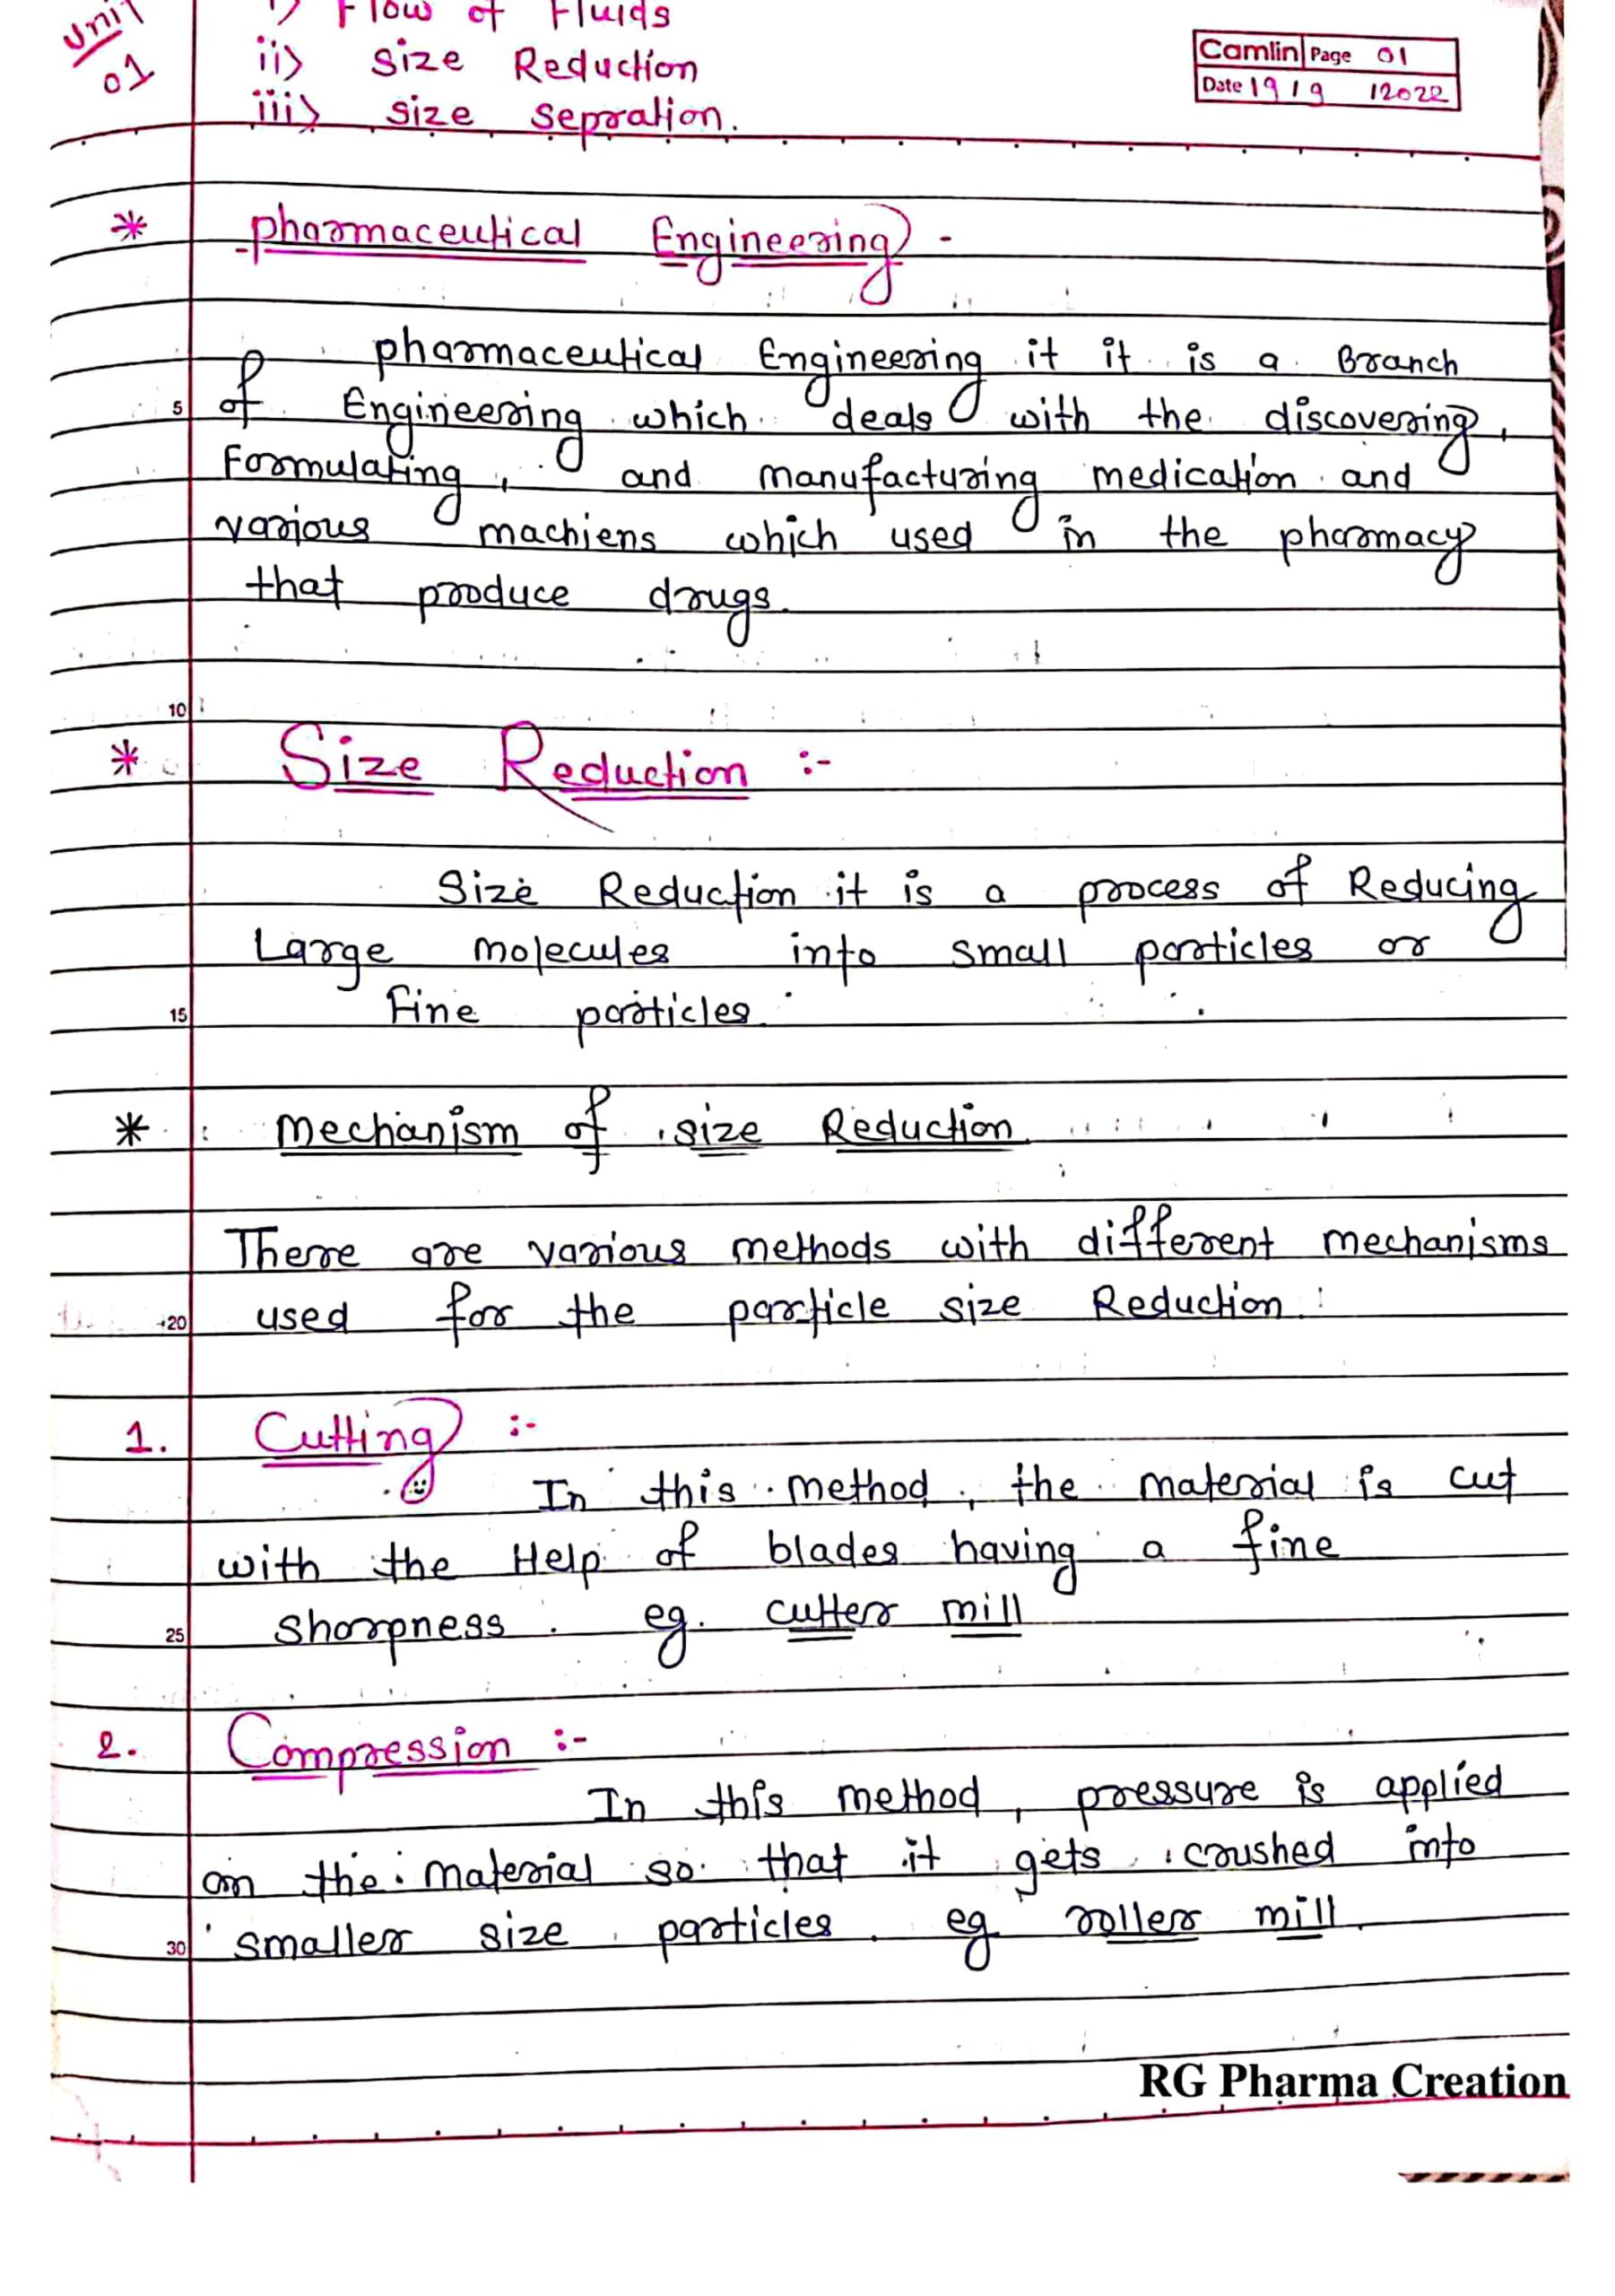 Unit
01
i) Flow of Fluids
ii) Size Reduction
iii) size sepration.
Camlin Page 01
Date 19 / 9 / 2022
* pharmaceutical Engineering -
pharmaceutical Engineering it it is a Branch
5 of Engineering which deals with the discovering,
Formulating, and manufacturing medication and
various machiens which used in the pharmacy
that produce drugs.
10
* Size Reduction :-
Size Reduction it is a process of Reducing
Large molecules into small particles or
15 Fine particles.
* Mechanism of size Reduction
There are various methods with different mechanisms
20 used for the particle size Reduction.
1. Cutting :-
In this method, the material is cut
with the Help of blades having a fine
25 sharpness. eg. cutter mill
2. Compression :-
In this method, pressure is applied
on the material so that it gets crushed into
30 smaller size particles. eg roller mill.
RG Pharma Creation